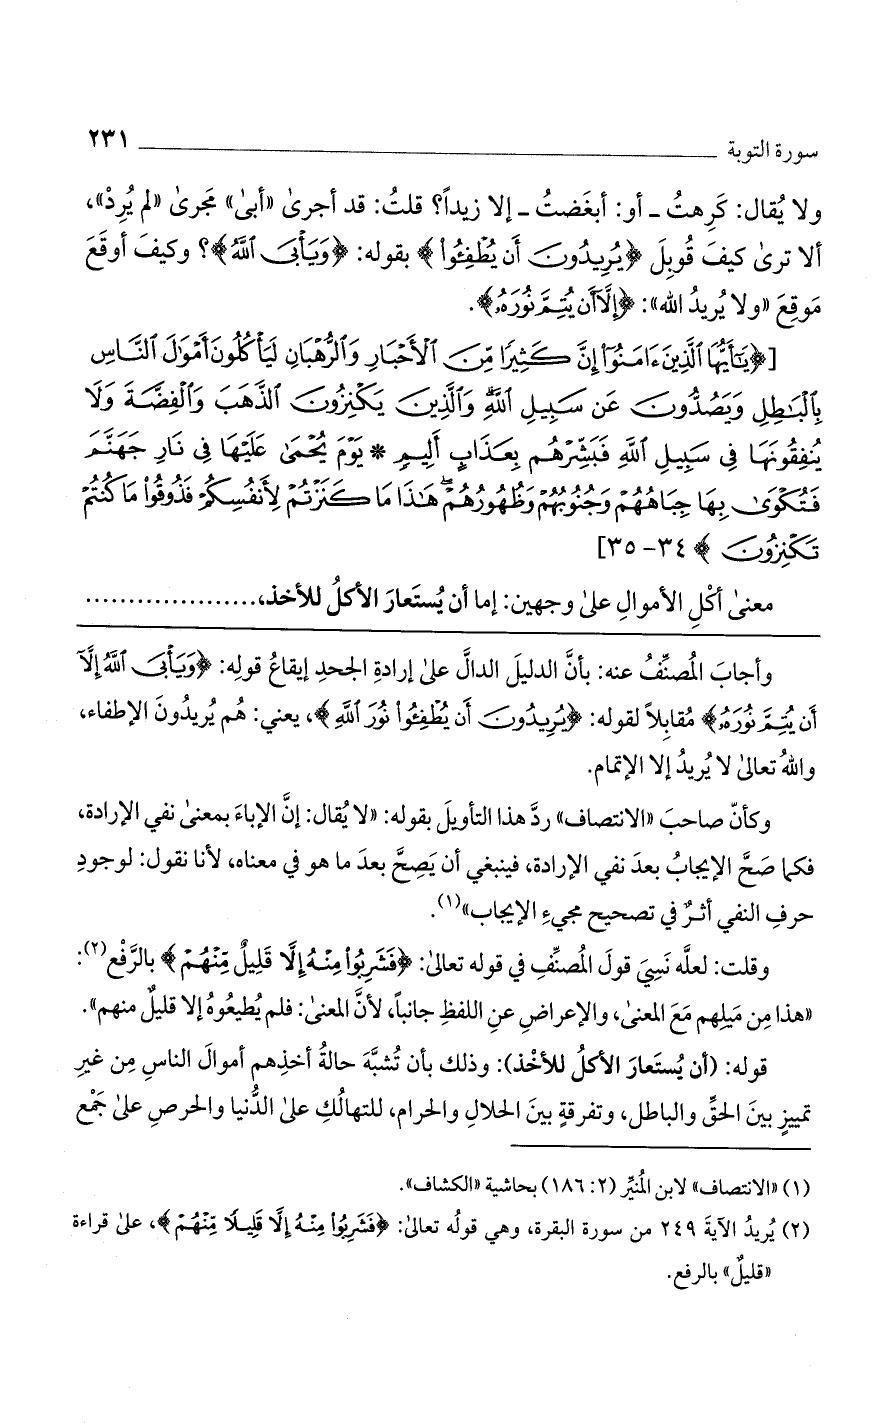 سورة التوبة ٢٣١
ولا يُقال: كَرِهتُ ـ أو: أبغَضتُ ـ إلا زيداً؟ قلتُ: قد أجرىٰ «أبىٰ» مَجرىٰ «لم يُرِدْ»،
ألا ترىٰ كيفَ قُوبِلَ ﴿يُرِيدُونَ أَن يُطْفِئُوا۟﴾ بقوله: ﴿وَيَأْبَى ٱللَّهُ﴾؟ وكيفَ أوقَعَ
مَوقِعَ «ولا يُريدُ الله»: ﴿إِلَّآ أَن يُتِمَّ نُورَهُۥ﴾.
[﴿يَٰٓأَيُّهَا ٱلَّذِينَ ءَامَنُوٓا۟ إِنَّ كَثِيرًا مِّنَ ٱلْأَحْبَارِ وَٱلرُّهْبَانِ لَيَأْكُلُونَ أَمْوَٰلَ ٱلنَّاسِ
بِٱلْبَٰطِلِ وَيَصُدُّونَ عَن سَبِيلِ ٱللَّهِ ۗ وَٱلَّذِينَ يَكْنِزُونَ ٱلذَّهَبَ وَٱلْفِضَّةَ وَلَا
يُنفِقُونَهَا فِى سَبِيلِ ٱللَّهِ فَبَشِّرْهُم بِعَذَابٍ أَلِيمٍ * يَوْمَ يُحْمَىٰ عَلَيْهَا فِى نَارِ جَهَنَّمَ
فَتُكْوَىٰ بِهَا جِبَاهُهُمْ وَجُنُوبُهُمْ وَظُهُورُهُمْ ۖ هَٰذَا مَا كَنَزْتُمْ لِأَنفُسِكُمْ فَذُوقُوا۟ مَا كُنتُمْ
تَكْنِزُونَ﴾ ٣٤ - ٣٥]
معنىٰ أكْلِ الأموالِ علىٰ وجهين: إما أن يُستَعارَ الأكلُ للأخذ،...................
وأجابَ المُصنِّفُ عنه: بأنَّ الدليلَ الدالَّ علىٰ إرادةِ الجحدِ إيقاعُ قولِه: ﴿وَيَأْبَى ٱللَّهُ إِلَّآ
أَن يُتِمَّ نُورَهُۥ﴾ مُقابِلاً لقوله: ﴿يُرِيدُونَ أَن يُطْفِئُوا۟ نُورَ ٱللَّهِ﴾، يعني: هُم يُريدُونَ الإطفاء،
واللهُ تعالىٰ لا يُريدُ إلا الإتمام.
وكأنّ صاحبَ «الانتصاف» ردَّ هذا التأويلَ بقوله: «لا يُقال: إنَّ الإباءَ بمعنىٰ نفي الإرادة،
فكما صَحَّ الإيجابُ بعدَ نفي الإرادة، فينبغي أن يَصِحَّ بعدَ ما هو في معناه، لأنا نقول: لوجودِ
حرفِ النفي أثرٌ في تصحيح مجيءِ الإيجاب»(١).
وقلت: لعلَّه نَسِيَ قولَ المُصنِّفِ في قوله تعالىٰ: ﴿فَشَرِبُوا۟ مِنْهُ إِلَّا قَلِيلٌ مِّنْهُمْ﴾ بالرَّفْع(٢):
«هذا مِن مَيلِهم مَعَ المعنىٰ، والإعراضِ عنِ اللفظِ جانباً، لأنَّ المعنىٰ: فلم يُطيعُوهُ إلا قليلٌ منهم».
قوله: (أن يُستَعارَ الأكلُ للأخْذ): وذلك بأن تُشبَّهَ حالةُ أخذِهم أموالَ الناسِ مِن غيرِ
تمييزٍ بينَ الحقِّ والباطل، وتفرقةٍ بينَ الحلالِ والحرام، للتهالُكِ علىٰ الدُّنيا والحرصِ علىٰ جَمْع
(١) «الانتصاف» لابن المُنيِّر (٢: ١٨٦) بحاشية «الكشاف».
(٢) يُريدُ الآيةَ ٢٤٩ من سورة البقرة، وهي قولُه تعالىٰ: ﴿فَشَرِبُوا۟ مِنْهُ إِلَّا قَلِيلًا مِّنْهُمْ﴾، علىٰ قراءة
«قليلٌ» بالرفع.